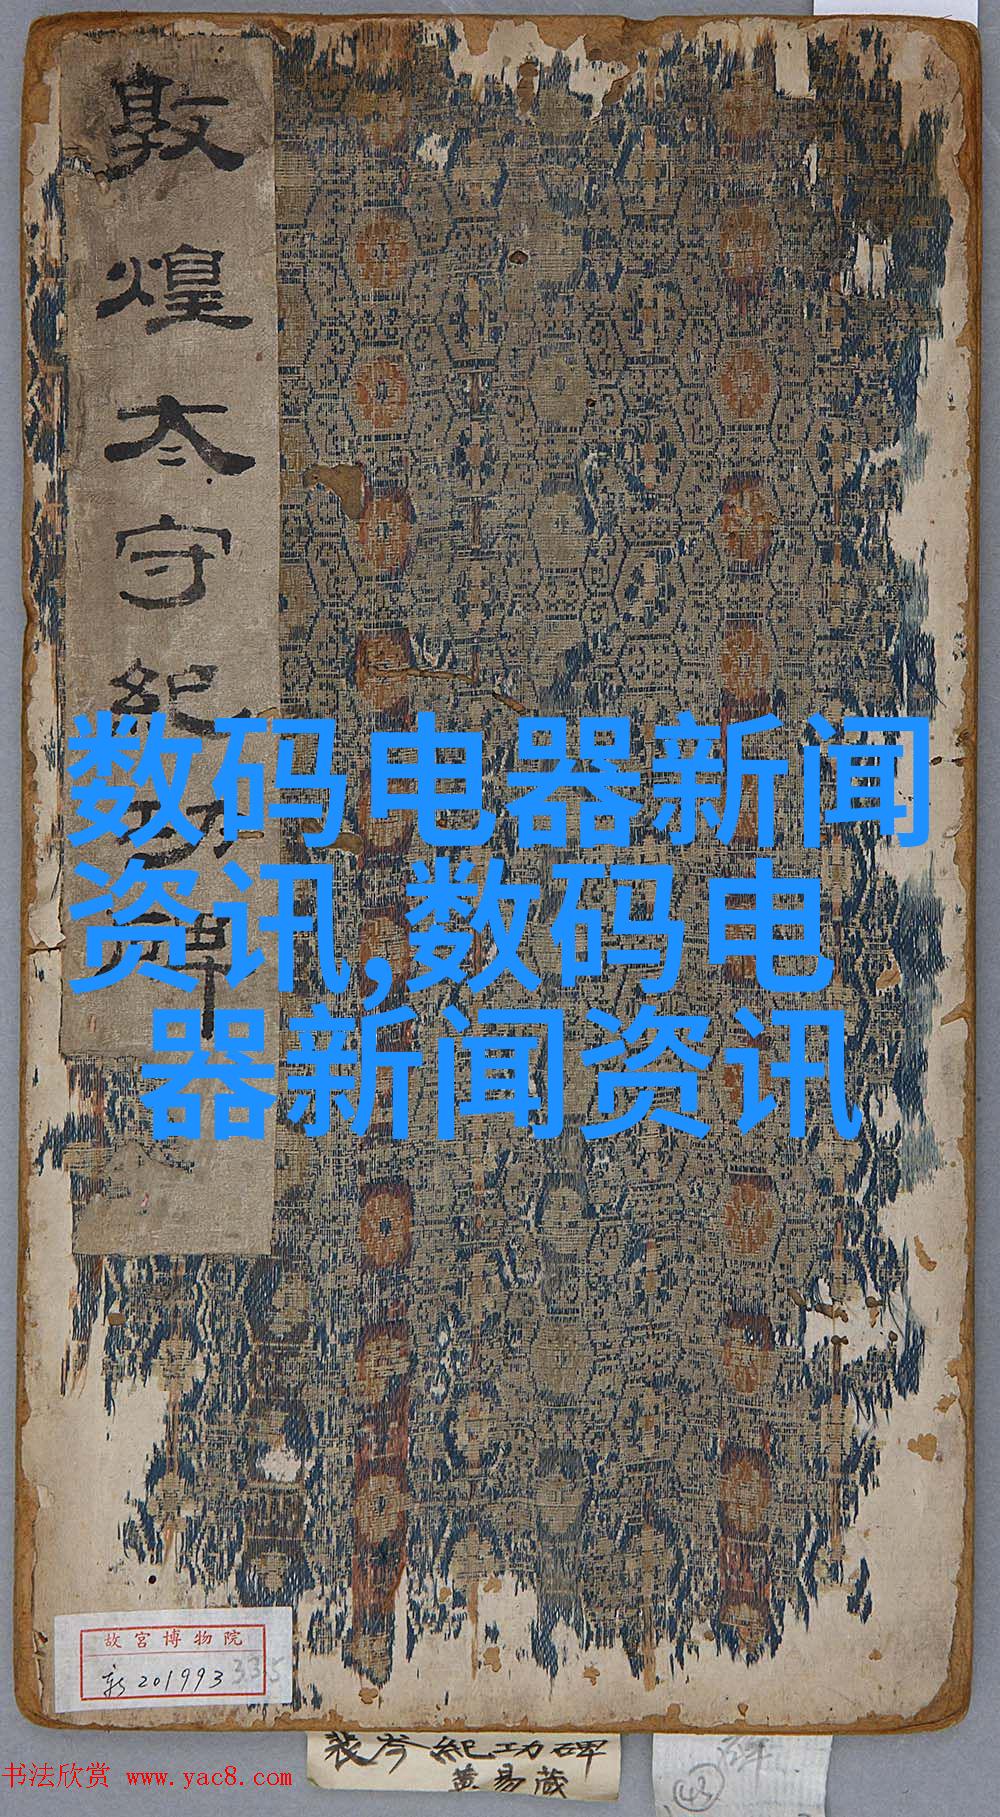 敦煌太守紀功碑
数码电器新闻
资讯,数码电
器新闻资讯
故宫博物院
新201993 335
裴岑紀功碑
黄易藏
43
书法欣赏 www.yac8.com